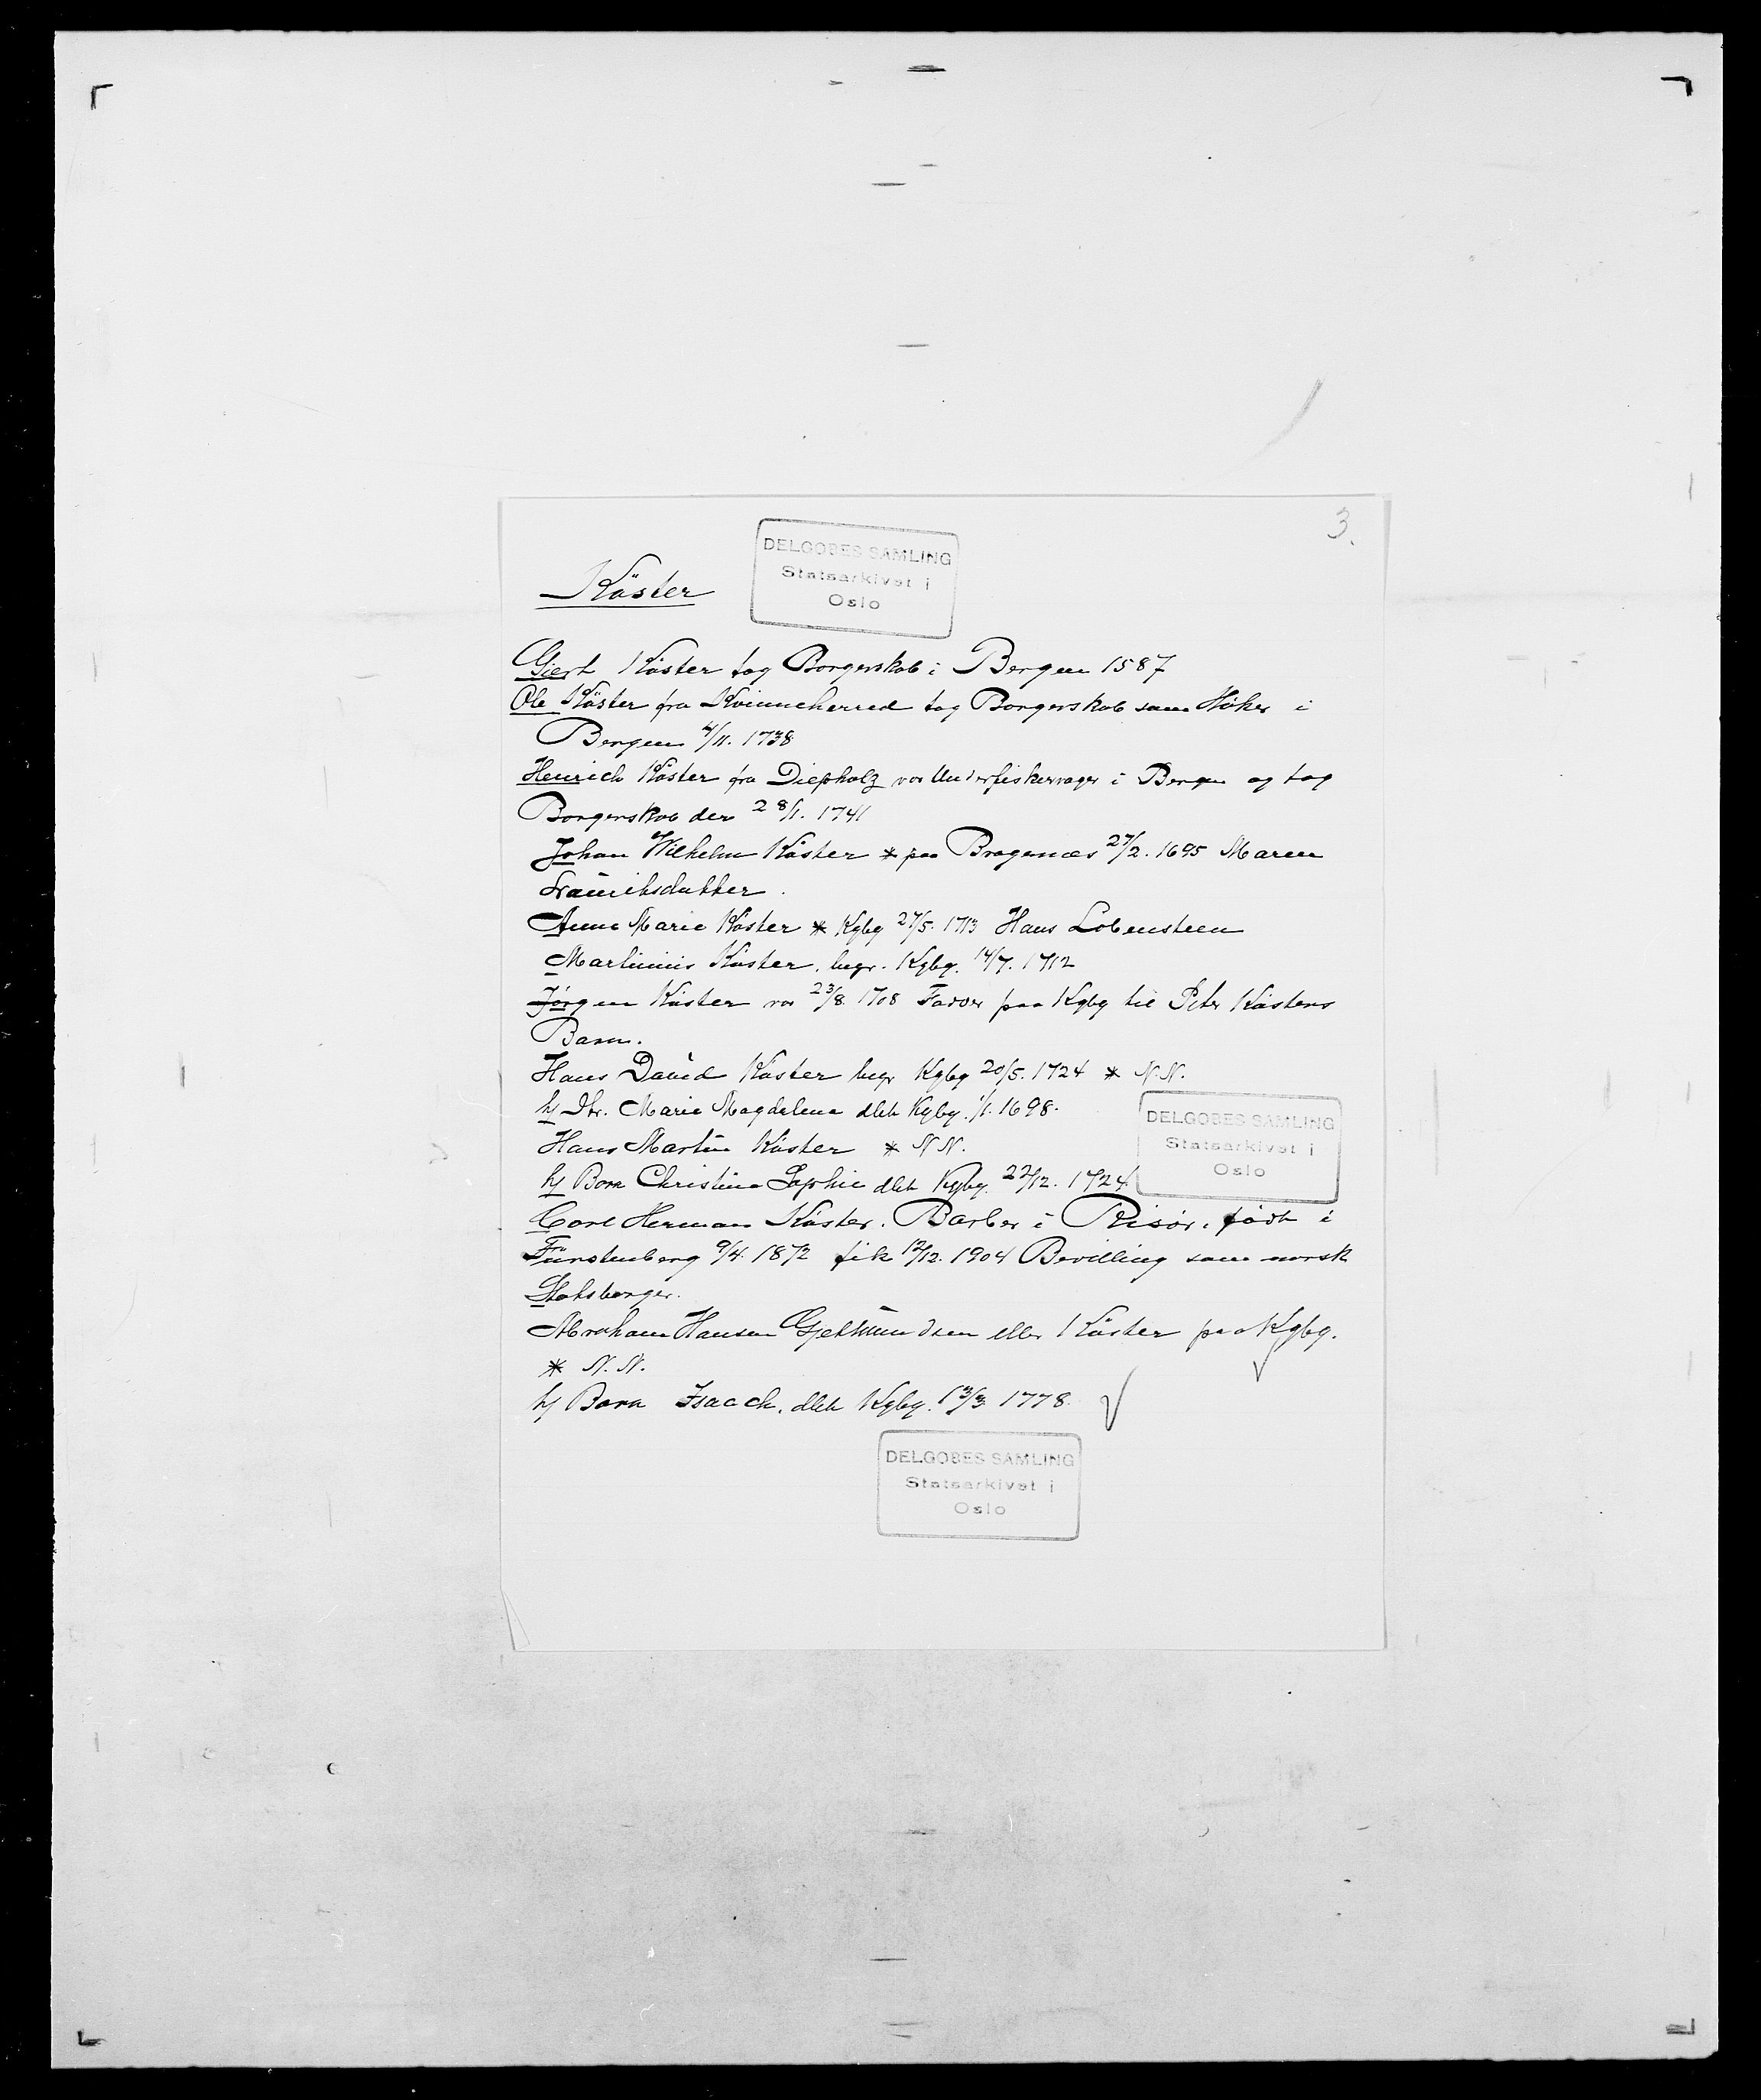 3.
DELGOBES SAMLING
Statsarkivet i
Oslo
Köster
Giert Köster tog Borgerskab i Bergen 1587
Ole Köster fra Kvinneherred tog Borgerskab som Höker i
Bergen 4/11. 1738
Henrich Köster fra Diepholz var Underfiskervager i Bergen og tog
Borgerskab der 28/1. 1741
Johan Wilhelm Köster * paa Bragenæs 27/2. 1695 Maren
Lauritsdatter.
Anna Marie Köster * Kgbg 27/5. 1713 Hans Lobensteen
Martinus Köster. begr. Kgbg. 14/7. 1712
Jörgen Köster var 23/8 1708 Fadder paa Kgbg til Peter Kösters
Barn.
Hans David Köster begr Kgbg 20/5. 1724 * N.N.
h/ Dtr. Marie Magdalena døbt Kgbg. 1/1. 1698.
DELGOBES SAMLING
Statsarkivet i
Oslo
Hans Martin Köster * N.N.
h/ Barn Christine Sophie døbt Kgbg. 22/12. 1724
Carl Herman Köster. Barber i Risör, född i
Fürstenberg 9/4. 1872 fik 12/12. 1904 Bevilling som norsk
Statsborger.
Abraham Hansen eller Köster paa Kgbg.
* N.N.
h/ Barn Isaack, døbt Kgbg. 13/3 1778.
DELGOBES SAMLING
Statsarkivet i
Oslo